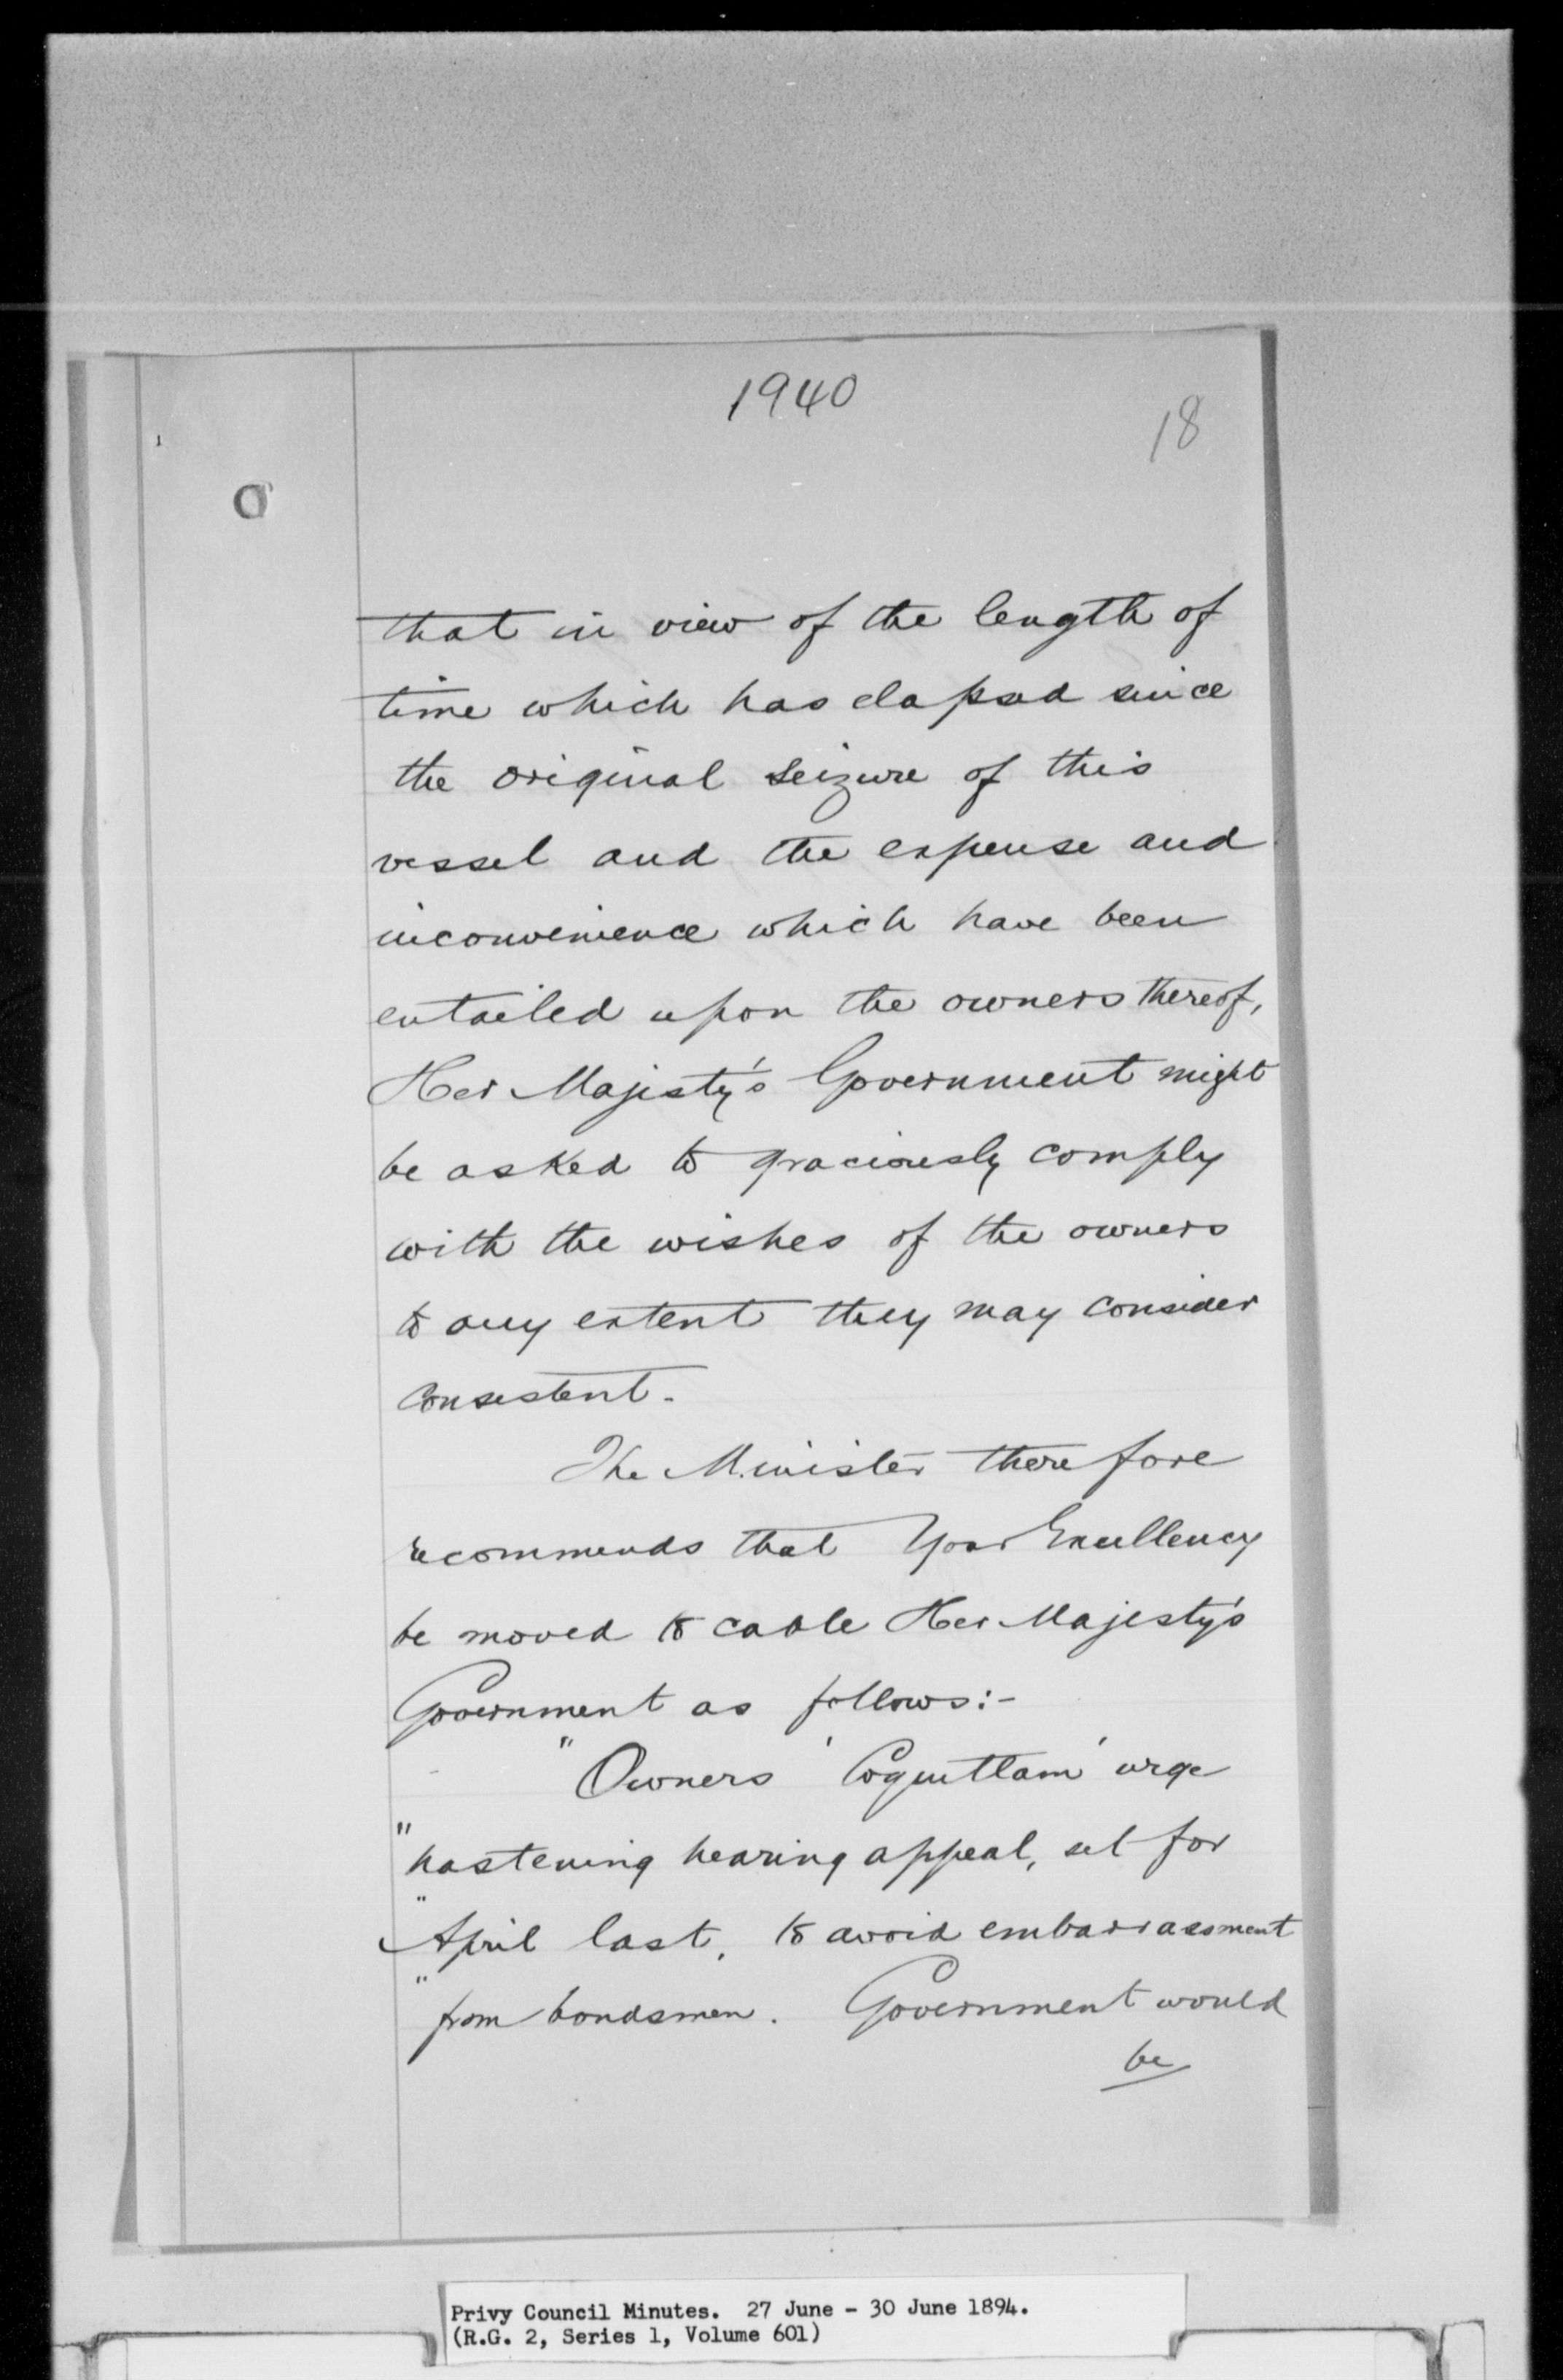 1940
18
O
that in view of the length of
time which has elapsed since
the original seizure of this
vessel and the expense and
inconvenience which have been
entailed upon the owners thereof,
Her Majesty's Government might
be asked to graciously comply
with the wishes of the owners
to any extent they may consider
consistent.
The Minister therefore
recommends that Your Excellency
be moved to cable Her Majesty's
Government as follows:-
"Owners 'Coquitlam' urge
"hastening hearing appeal, set for
"April last, to avoid embarrassment
"from bondsmen. Government would
be
Privy Council Minutes. 27 June - 30 June 1894.
(R.G. 2, Series 1, Volume 601)